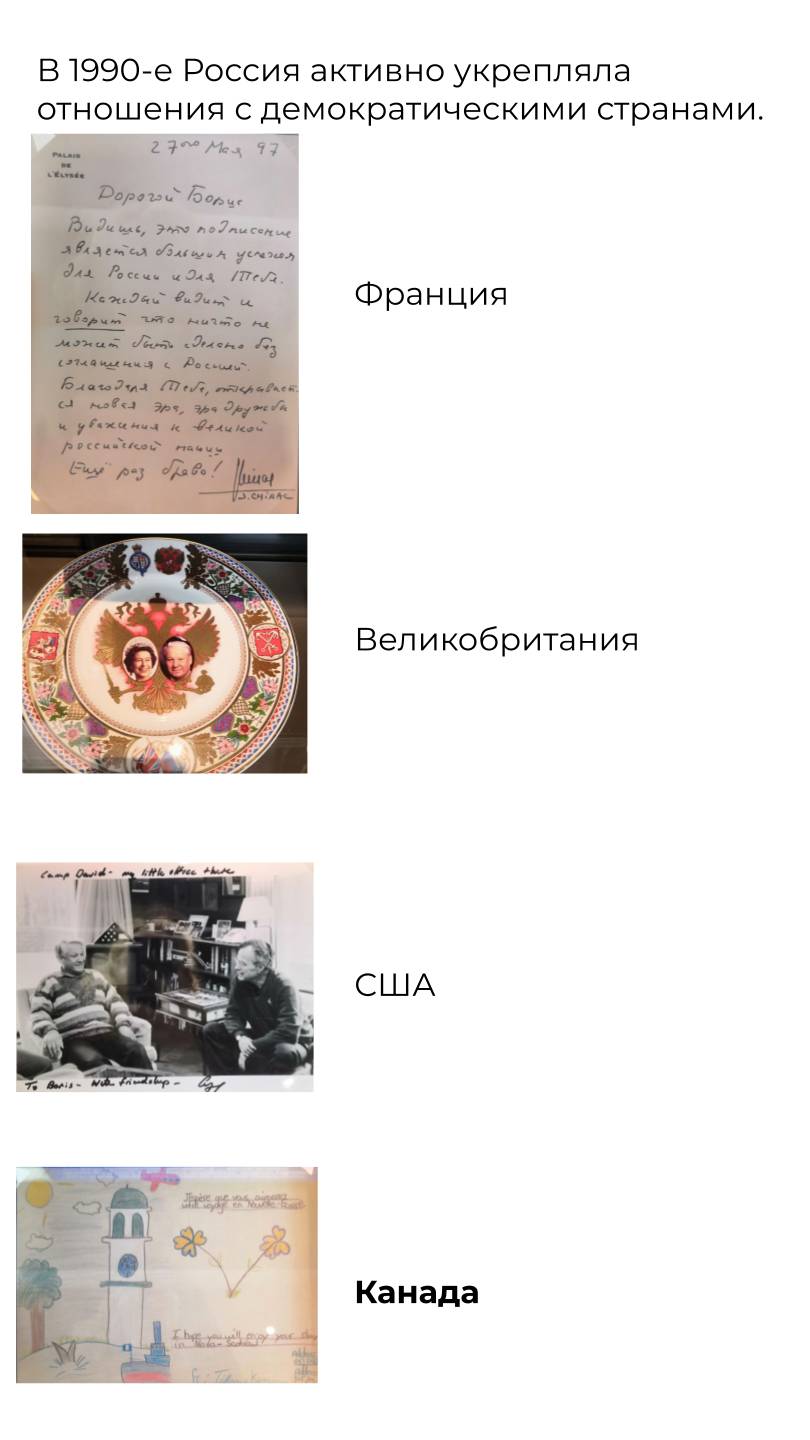 В 1990-е Россия активно укрепляла
отношения с демократическими странами.
PALAIS
DE
L'ÉLYSÉE
27го Мая 97
Дорогой Борис
Видишь, это подписание
является большим успехом
для России и для Тебя.
Каждый видит и
говорит что ничто не
может быть сделано без
соглашения с Россией.
Благодаря Тебе, открывает
ся новая эра, эра дружбы
и уважения к великой
российской нации
Ещё раз браво!
J. CHIRAC
Франция
Великобритания
Camp David - my little office there
To Boris - With friendship -
США
J'espère que vous aimerez
votre voyage en Nouvelle-
I hope you will enjoy your stay
in Nova-Scotia!
Канада